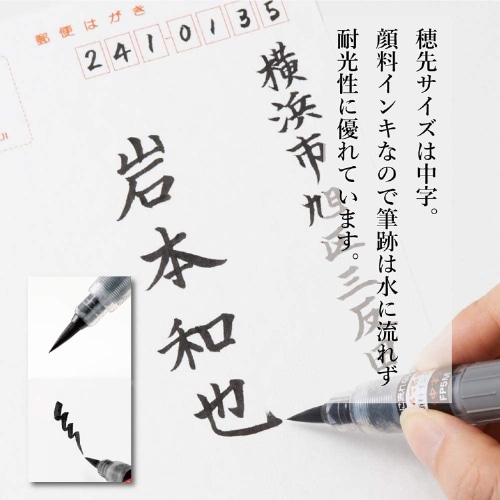 穂先サイズは中字。
顔料インキなので筆跡は水に流れず
耐光性に優れています。
郵便はがき
2410135
横浜市旭区三反田
岩本和也
FP5M